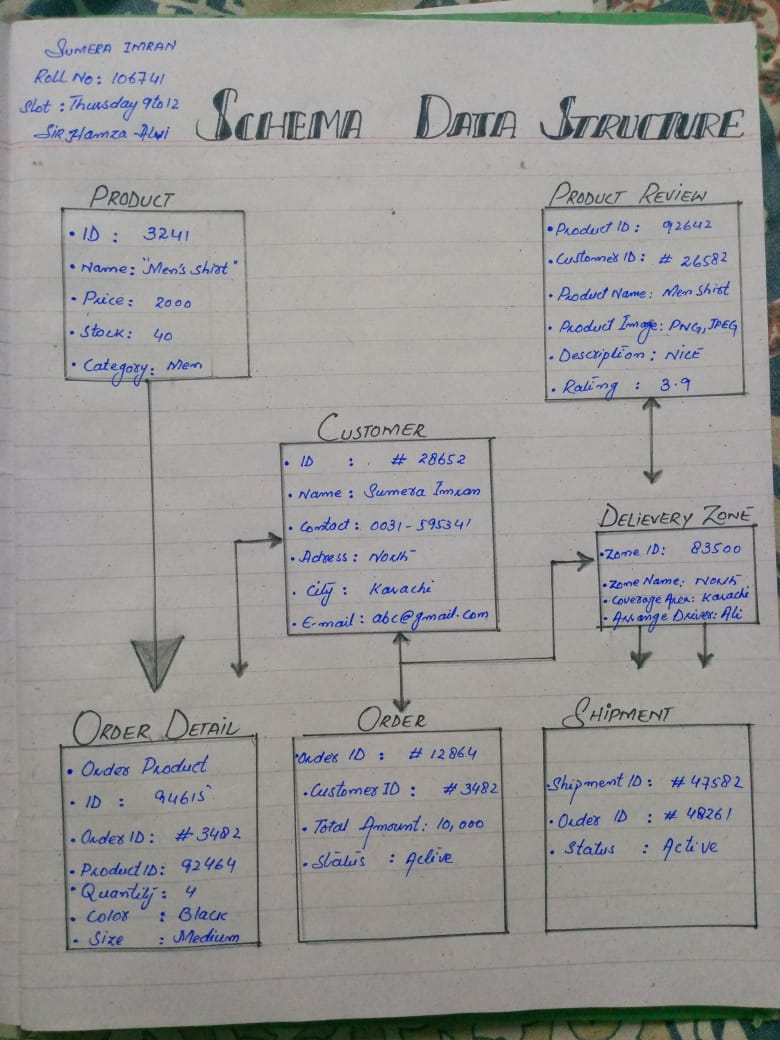 SUMERA IMRAN
ROLL NO: 106741
Slot : Thursday 9 to 12
Sir Hamza Alvi
SCHEMA DATA STRUCTURE
PRODUCT
• ID : 3241
• Name: "Men's shirt"
• Price : 2000
• Stock: 40
• Category: Men
PRODUCT REVIEW
• Product ID : 92642
• Customer ID : # 26582
• Product Name: Men shirt
• Product Image: PNG, JPEG
• Description : NICE
• Rating : 3.9
CUSTOMER
• ID : # 28652
• Name : Sumera Imran
• Contact : 0031-595341
• Adress : North
• City : Karachi
• E-mail : abc@gmail.com
DELIEVERY ZONE
• Zone ID: 83500
• Zone Name: North
• Coverage Area: Karachi
• Arrange Driver: Ali
ORDER DETAIL
• Order Product
• ID : 94615
• Order ID: #3482
• Product ID: 92464
• Quantity : 4
• Color : Black
• Size : Medium
ORDER
• Order ID : # 12864
• Customer ID : # 3482
• Total Amount: 10,000
• Status : Active
SHIPMENT
• Shipment ID: #47582
• Order ID : # 48261
• Status : Active